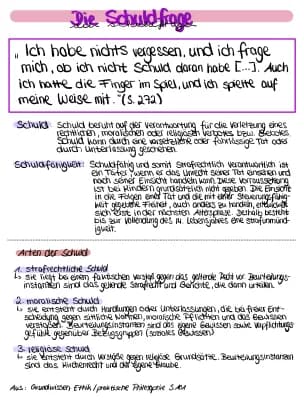 Die Schuldfrage
„Ich habe nichts vergessen, und ich frage
mich, ob ich nicht Schuld daran habe [...]. Auch
ich hatte die Finger im Spiel, und ich spielte auf
meine Weise mit." (S. 272)
Schuld: Schuld beruht auf der Verantwortung für die Verletzung eines
rechtlichen, moralischen oder religiösen Verbotes bzw. Gebotes.
Schuld kann durch eine vorsätzliche oder fahrlässige Tat oder
durch Unterlassung geschehen.
Schuldfähigkeit: Schuldfähig und somit strafrechtlich verantwortlich ist
ein Täter, wenn er das Unrecht seiner Tat einsehen und
nach seiner Einsicht handeln kann. Diese Voraussetzung
ist bei Kindern grundsätzlich nicht gegeben. Die Einsicht
in die Folgen einer Tat und die mit einer Steuerungsfähig-
keit gegebene Freiheit, auch anders zu handeln, entwickelt
sich erst in der nächsten Altersphase. Deshalb besteht
bis zur Vollendung des 14. Lebensjahres eine Strafunmünd-
igkeit.
Arten der Schuld
1. strafrechtliche Schuld
↳ sie liegt bei einem faktischen Verstoß gegen das geltende Recht vor. Beurteilungs-
instanzen sind das geltende Strafrecht und Gerichte, die dann urteilen.
2. moralische Schuld
↳ sie entsteht durch Handlungen oder Unterlassungen, die bei freier Ent-
scheidung gegen sittliche Normen, moralische Pflichten und das Gewissen
verstoßen. Beurteilungsinstanzen sind das eigene Gewissen sowie Verpflichtungs-
gefühle gegenüber Bezugsgruppen (soziales Gewissen)
3. religiöse Schuld
↳ sie entsteht durch Verstöße gegen religiöse Grundsätze. Beurteilungsinstanzen
sind das Kirchenrecht und der eigene Glaube.
Aus: Grundwissen Ethik/praktische Philosophie S.